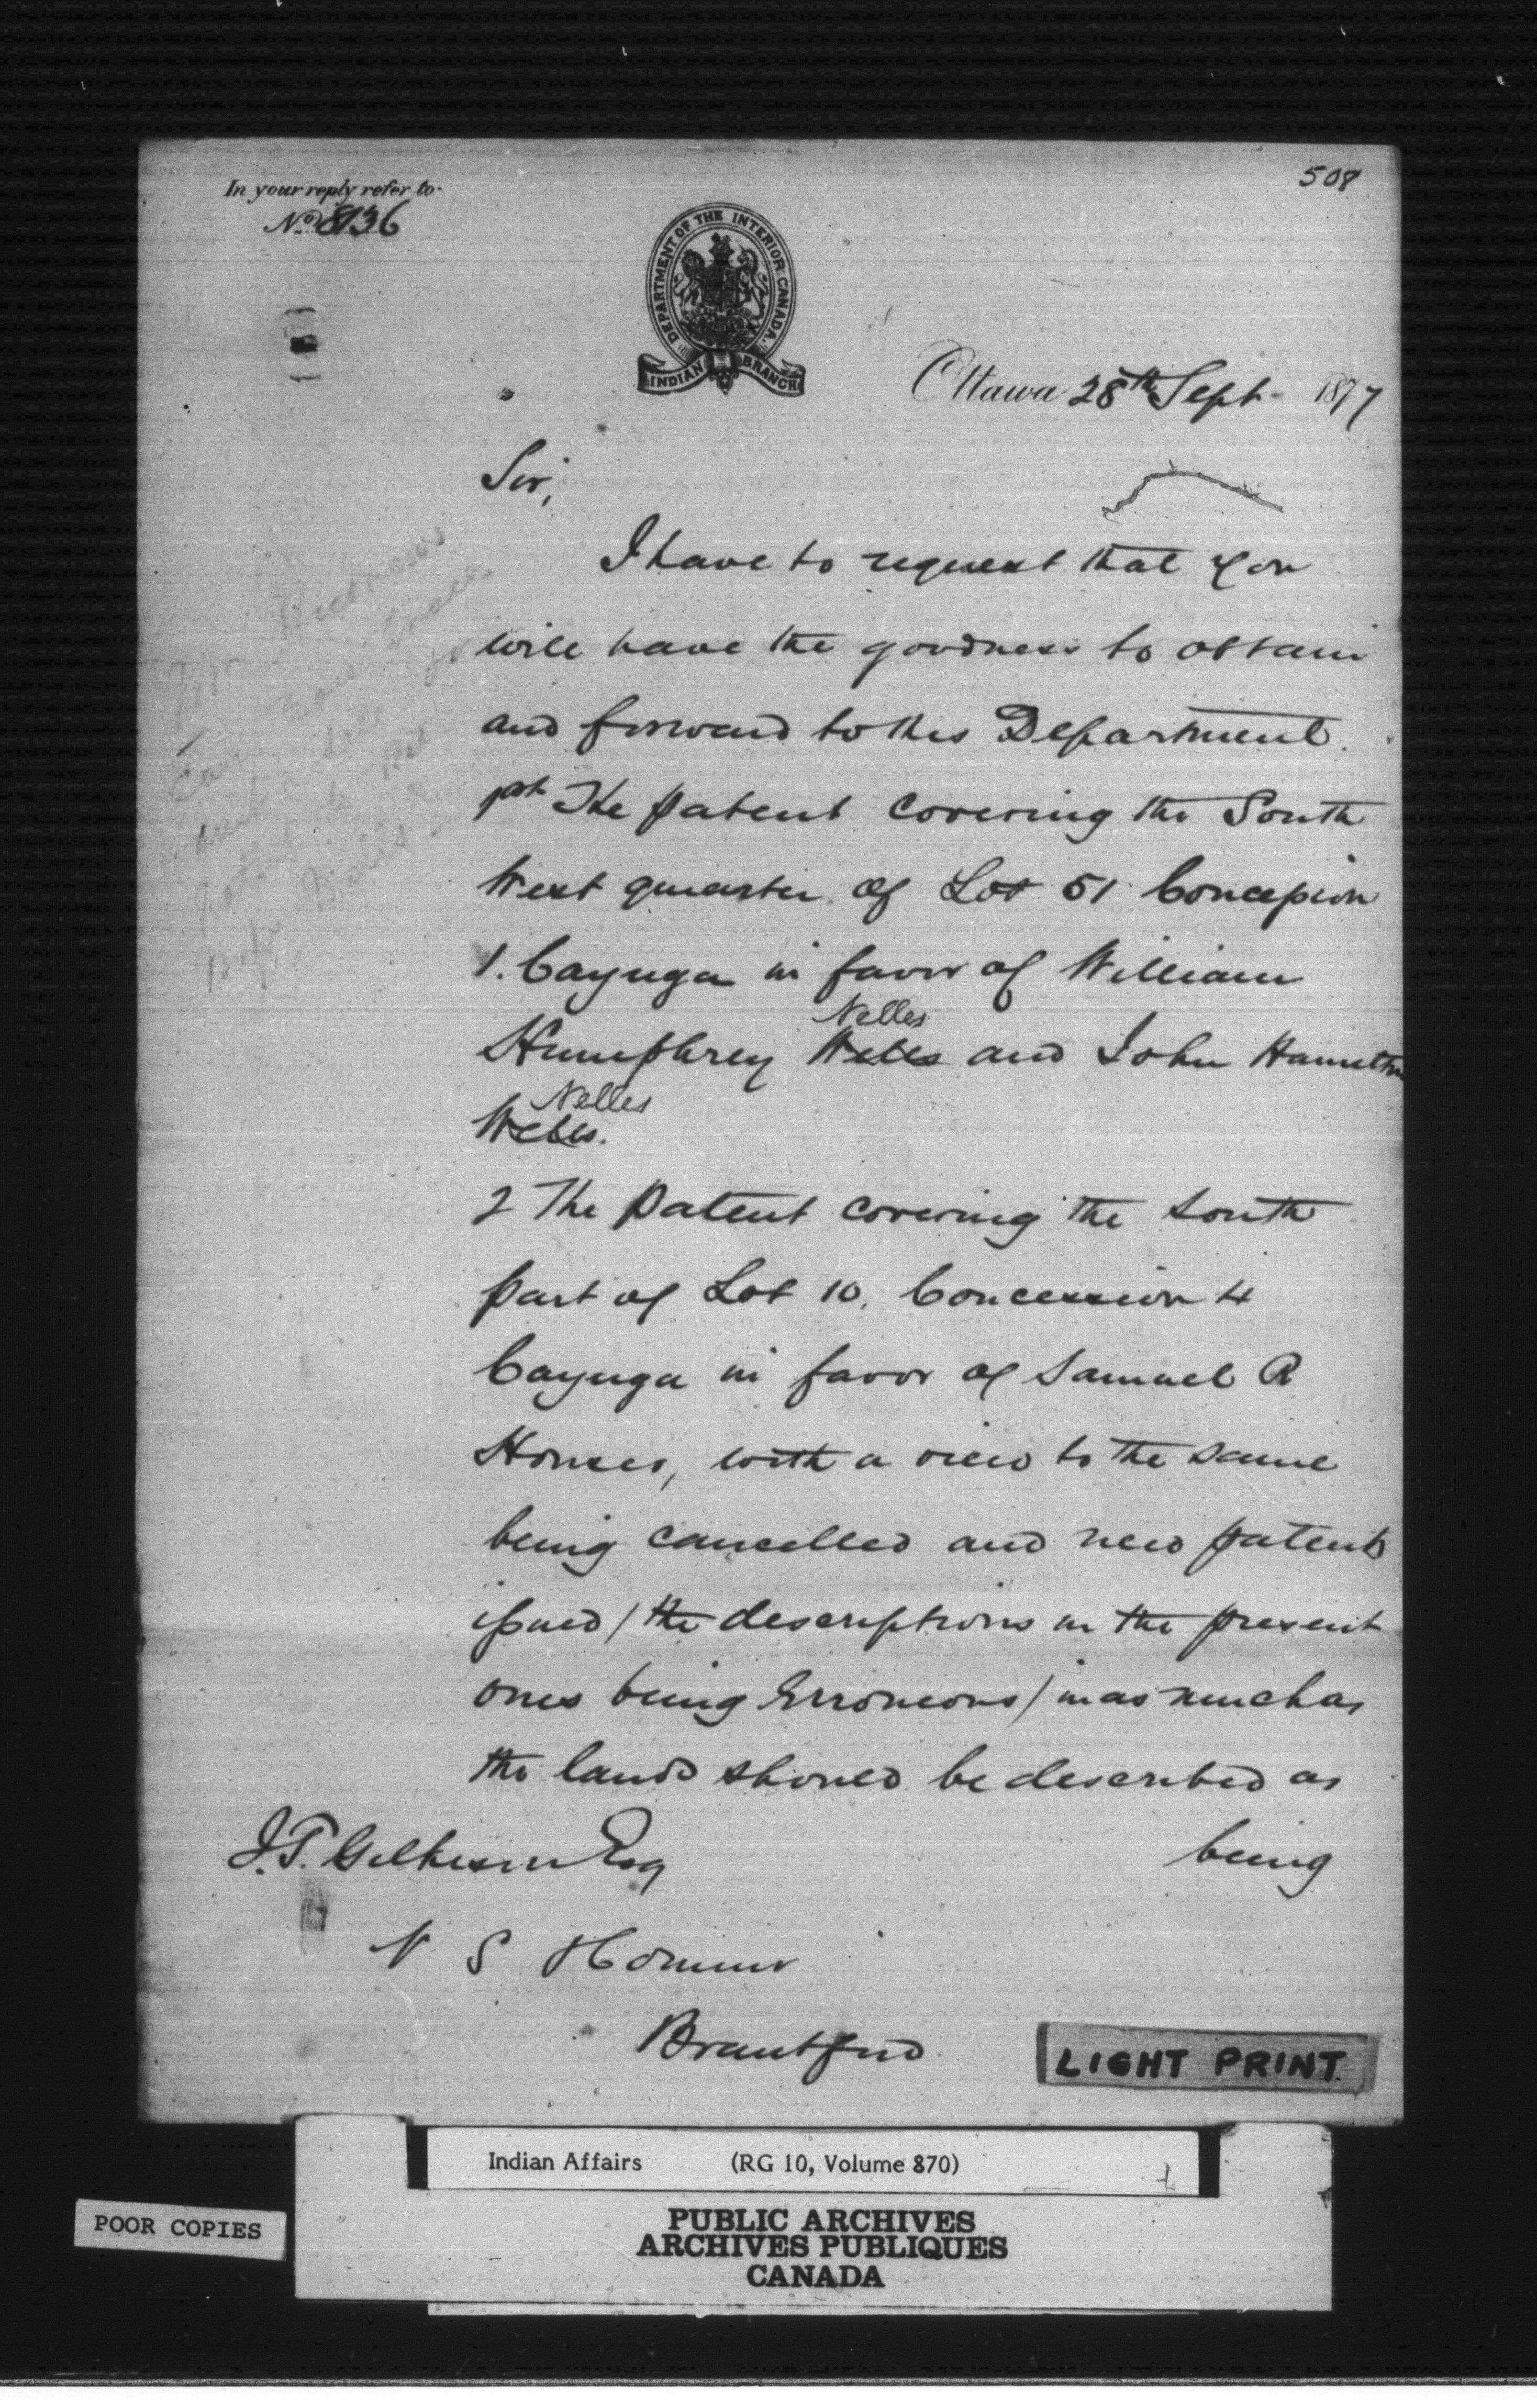 508
In your reply refer to
No. 8136
DEPARTMENT OF THE INTERIOR. CANADA.
INDIAN BRANCH
Ottawa 28th Sept. 1877
Sir,
I have to request that you
will have the goodness to obtain
and forward to this Department.
1st The patent covering the South
West quarter of Lot 51 Concession
1. Cayuga in favor of William
Nelles
Humphrey Webes and John Hamilton
Nelles
Webes.
2 The patent covering the South
part of Lot 10, Concession 4
Cayuga in favor of Samuel R
Houser, with a view to the same
being cancelled and new patents
issued / the descriptions in the present
ones being Erroneous / in as much as
the lands should be described as
being
J. T. Gilkison Esq
V S
Brantford
LIGHT PRINT.
Indian Affairs (RG 10, Volume 870)
POOR COPIES
PUBLIC ARCHIVES
ARCHIVES PUBLIQUES
CANADA